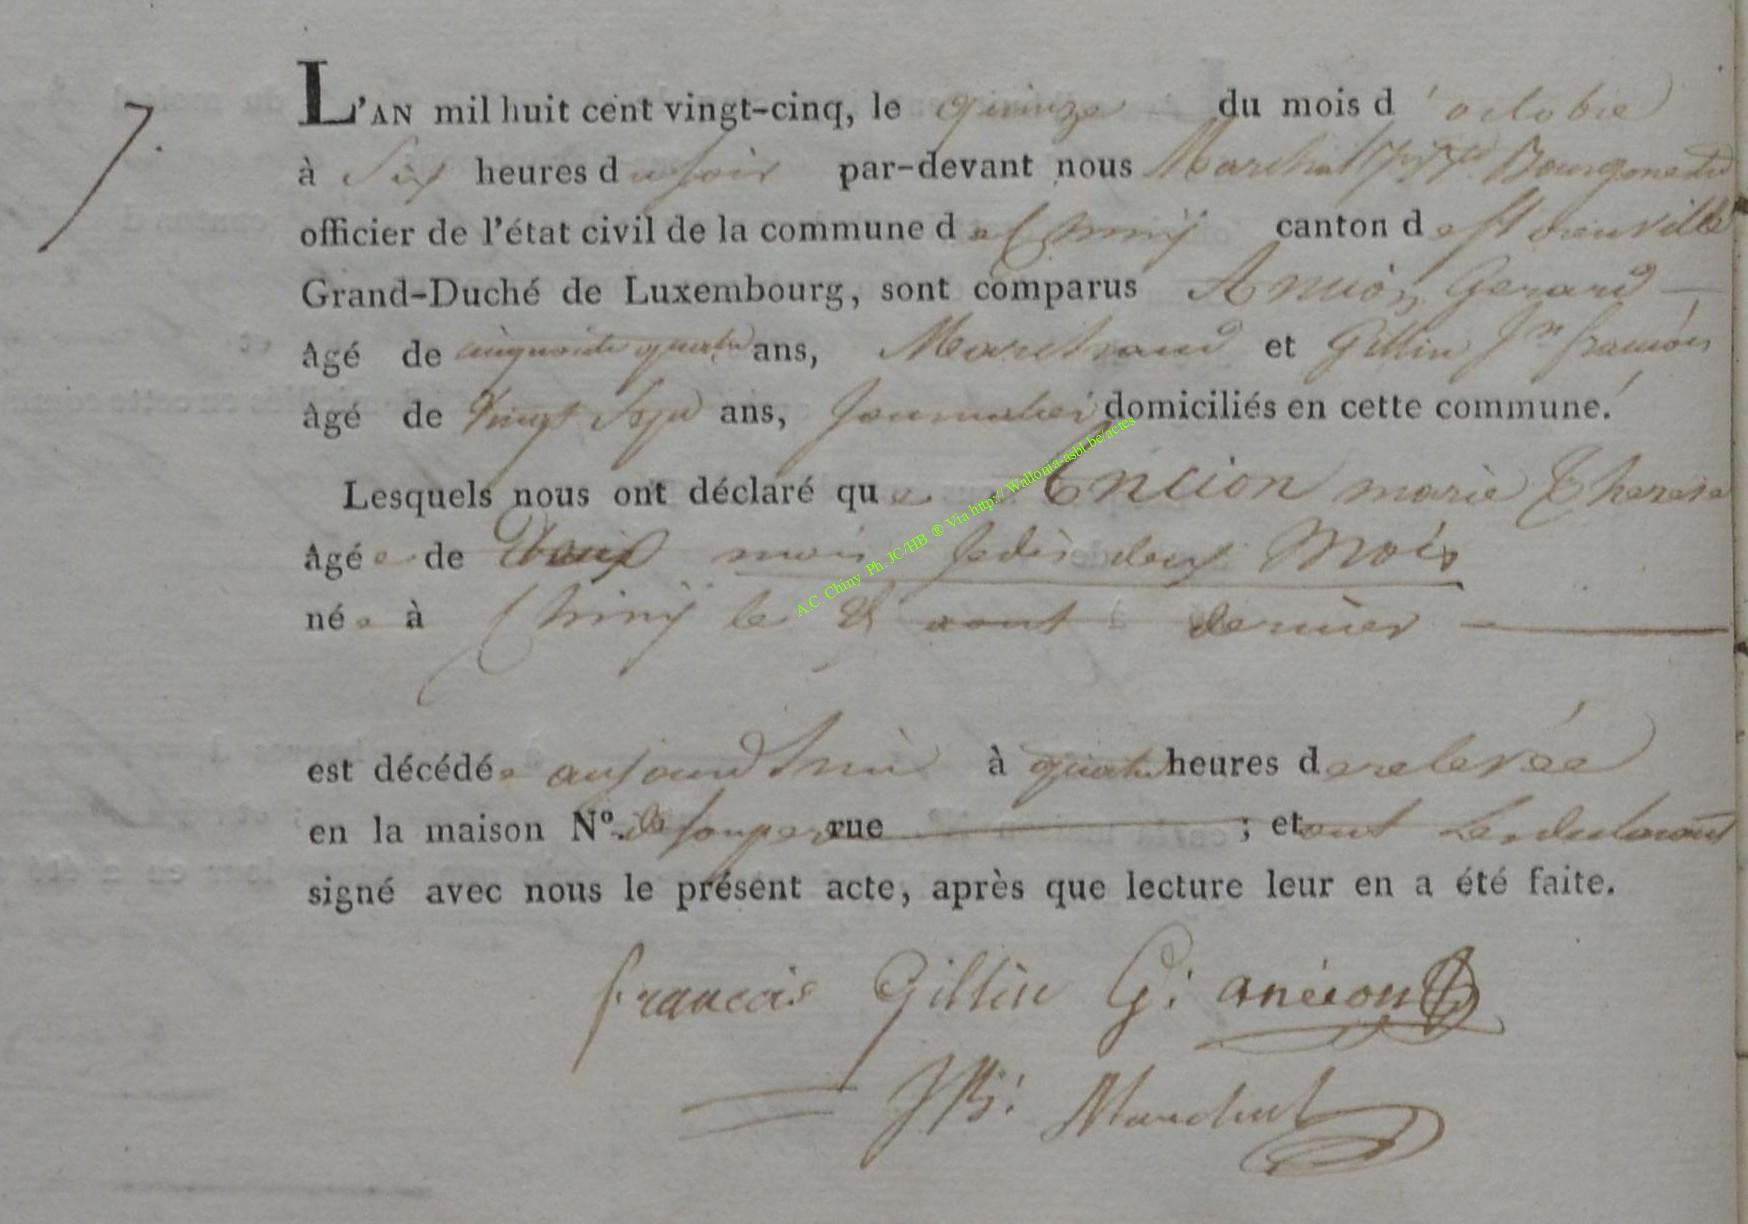 7.
L'AN mil huit cent vingt-cinq, le quinze du mois d'octobre
à Six heures du soir par-devant nous Marchal Bourgmestre
officier de l'état civil de la commune de Chiny canton de
Grand-Duché de Luxembourg, sont comparus Ancion Gerard
âgé de cinquante quatre ans, Marchand et Gillin Jn françois
âgé de vingt Sept ans, Journalier domiciliés en cette commune.
Lesquels nous ont déclaré que Encion marie Therese
âgée de deux mois Jedis deux Mois
née à Chiny le aout dernier
est décédée aujourd'hui à quatre heures de relevée
en la maison No. de son pere rue ; et ont Les declarants
signé avec nous le présent acte, après que lecture leur en a été faite.
francois Gillin G. anciont
JB. Marchal
A.C. Chiny Ph. JC/HB ® Via http://Wallonia-asbl.be/actes